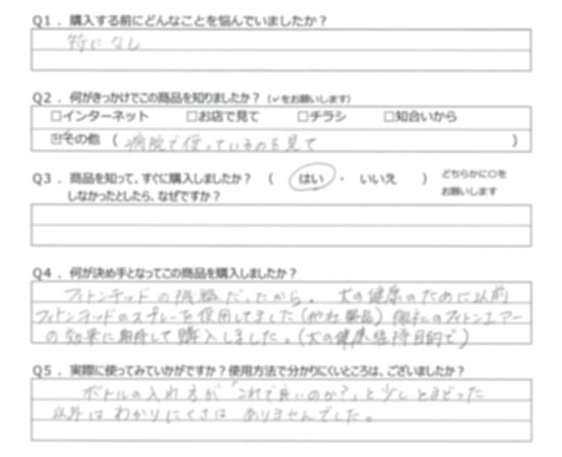 Q1．購入する前にどんなことを悩んでいましたか？
特になし
Q2．何がきっかけでこの商品を知りましたか？（✓をお願いします）
□インターネット　□お店で見て　□チラシ　□知合いから
☑その他（病院で使っているのを見て）
Q3．商品を知って、すぐに購入しましたか？（はい・いいえ）どちらかに○を
しなかったとしたら、なぜですか？　お願いします
Q4．何が決め手となってこの商品を購入しましたか？
フィトンチッドの機器だったから。犬の健康のために以前
フィトンチッドのスプレーを使用してました（他社製品）御社のフィトンエアー
の効果に期待して購入しました。（犬の健康維持目的で）
Q5．実際に使ってみていかがですか？使用方法で分かりにくいところは、ございましたか？
ボトルの入れ方が「これで良いのか？」と少しとまどった
以外はわかりにくさはありませんでした。